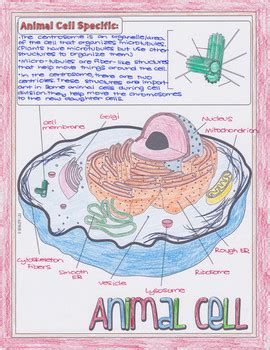 Animal Cell Specific:
•The centrosome is an organelle/area
of the cell that organizes microtubules.
(Plants have microtubules but use other
structures to organize them.)
•Micro-tubules are fiber-like structures
that help move things around the cell.
•In the centrosome, there are two
centrioles. These structures are import-
ant in some animal cells during cell
division. They help move the chromosomes
to the new daughter cells.
Cell
membrane
Golgi
Nucleus
Mitochondrion
Cytoskeleton
Fibers
Smooth
ER
Vesicle
Lysosome
Ribosome
Rough ER
Animal Cell